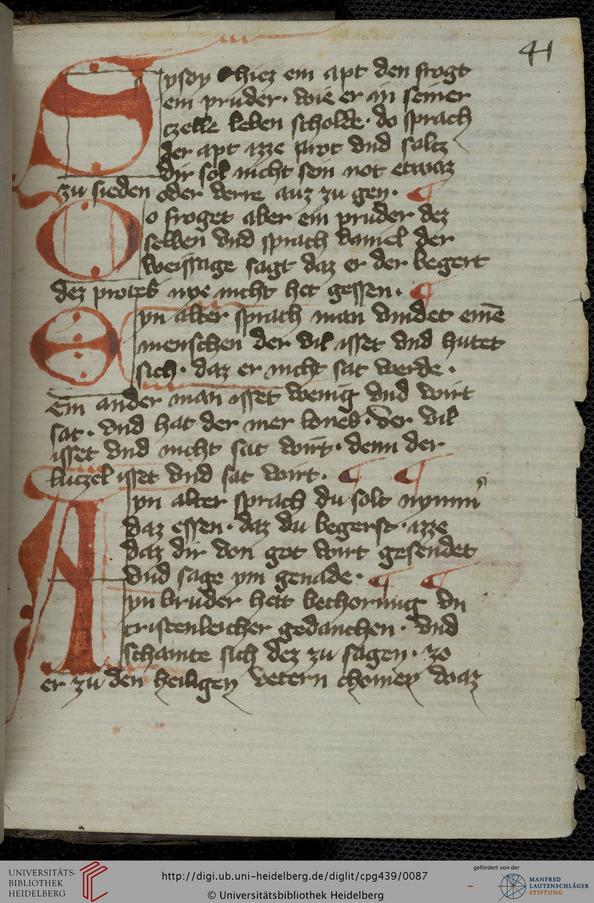 41
Sysoy hiez ein apt den frogt
ein pruder · wie er in seiner
czelle leben scholde · do sprach
der apt izze prot vnd saltz
dir sol nicht sein not etwaz
zu sieden oder verre auz zu gen ·
Do froget aber ein pruder dez
selben vnd sprach daniel der
weissage sagt daz er der begert
dez protes nye nicht het gessen ·
Eyn alter sprach man vindet eine
menschen der vil isset vnd hutet
sich · daz er nicht sat werde ·
Ein ander man isset wenig vnd wirt
sat · vnd hat der mer lones · der vil
isset vnd nicht sat wirt · denn der
lutzel isset vnd sat wirt ·
Ayn alter sprach du solt nymm
daz essen · daz du begerst · izze
daz dir von got wirt gesendet
vnd sage ym genade ·
Ayn bruder hett bechorung vn
cristenleicher gedanchen · vnd
schamte sich dez zu sagen · zo
er zu den heiligen vetern chomen waz
UNIVERSITÄTS-
BIBLIOTHEK
HEIDELBERG
http://digi.ub.uni-heidelberg.de/diglit/cpg439/0087
© Universitätsbibliothek Heidelberg
gefördert von der
MANFRED
LAUTENSCHLÄGER
STIFTUNG